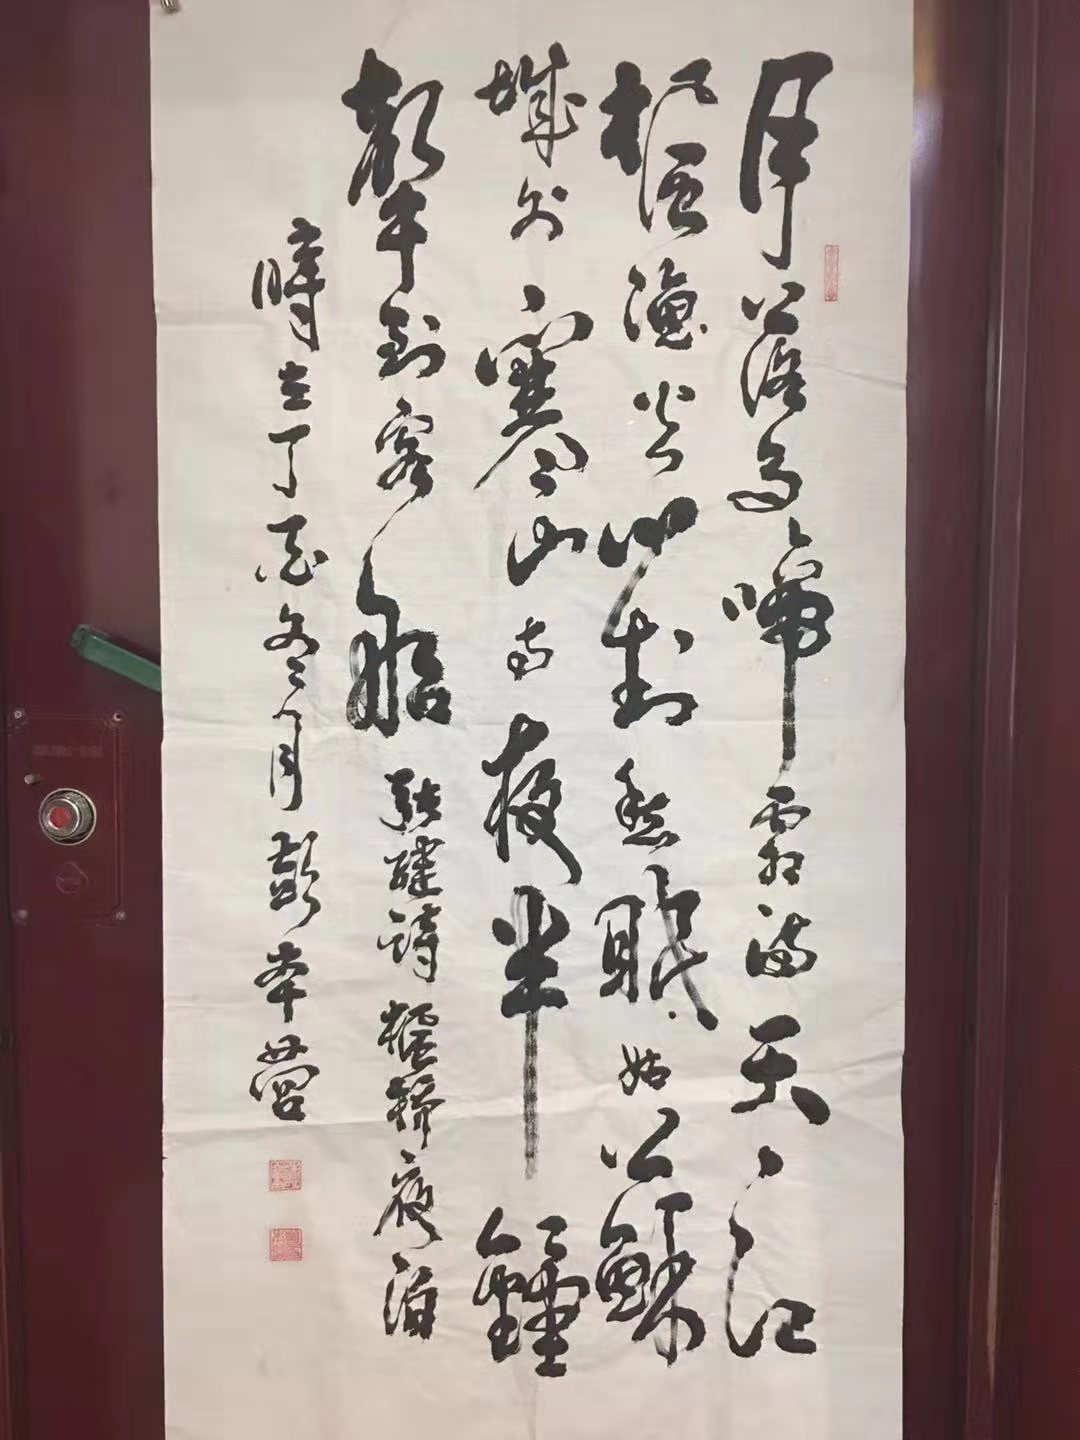 月落烏啼霜滿天江
楓漁火对愁眠姑蘇
城外寒山寺夜半鐘
聲到客船 張繼詩楓橋夜泊
時在丁酉冬月彭本營